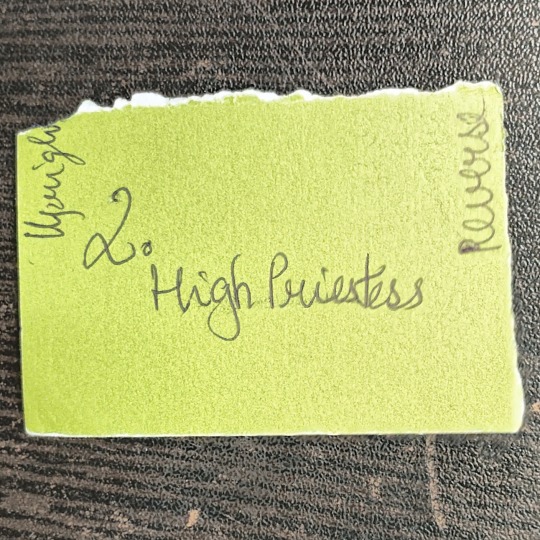 Upright
2.
High Priestess
Reverse